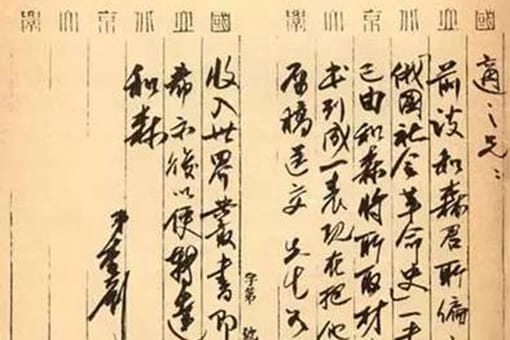 國立北京大學
適之兄：
前談和森君所編
「俄國社會革命史」一書
已由和森將所取材
書列成一表現在把他
原稿送交 先生
字第 號
國立北京大學
收入世界叢書即
希示復以便轉達
和森
弟